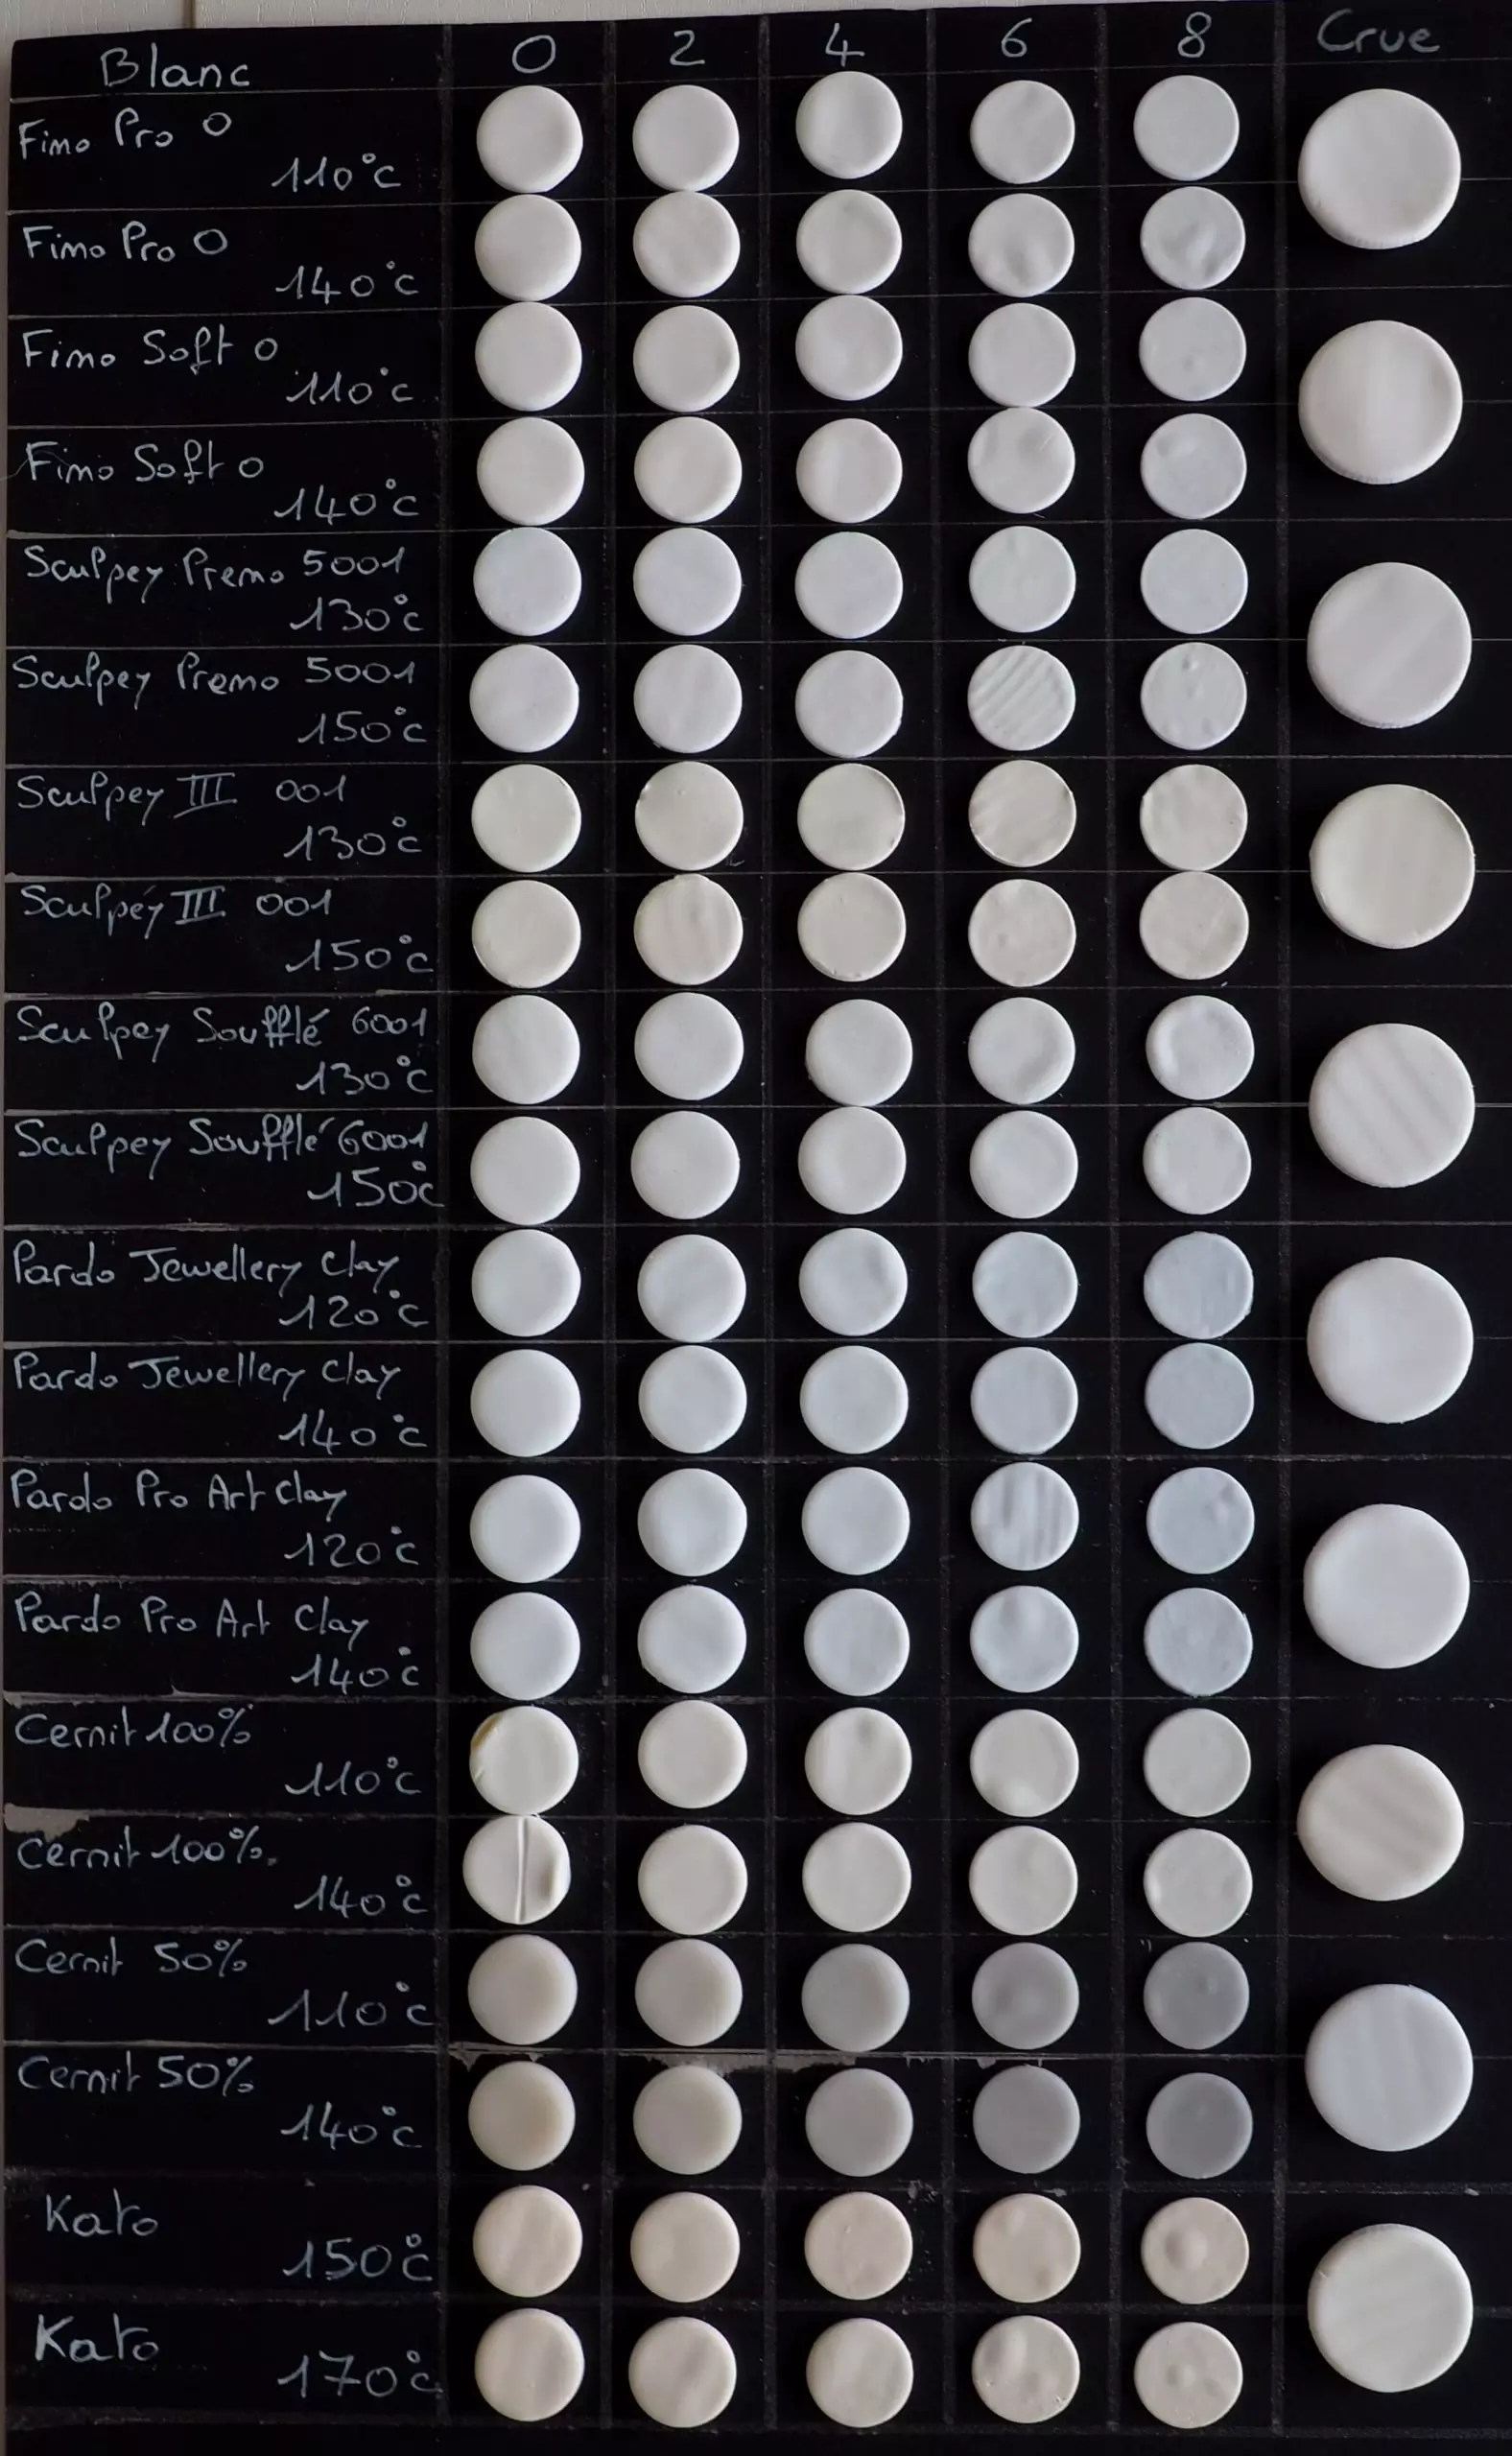 Blanc 0 2 4 6 8 Crue
Fimo Pro 0
110°c
Fimo Pro 0
140°c
Fimo Soft 0
110°c
Fimo Soft 0
140°c
Sculpey Premo 5001
130°c
Sculpey Premo 5001
150°c
Sculpey III 001
130°c
Sculpey III 001
150°c
Sculpey Soufflé 6001
130°c
Sculpey Soufflé 6001
150°c
Pardo Jewellery Clay
120°c
Pardo Jewellery Clay
140°c
Pardo Pro Art Clay
120°c
Pardo Pro Art Clay
140°c
Cernit 100%
110°c
Cernit 100%.
140°c
Cernit 50%
110°c
Cernit 50%
140°c
Kato
150°c
Kato
170°c